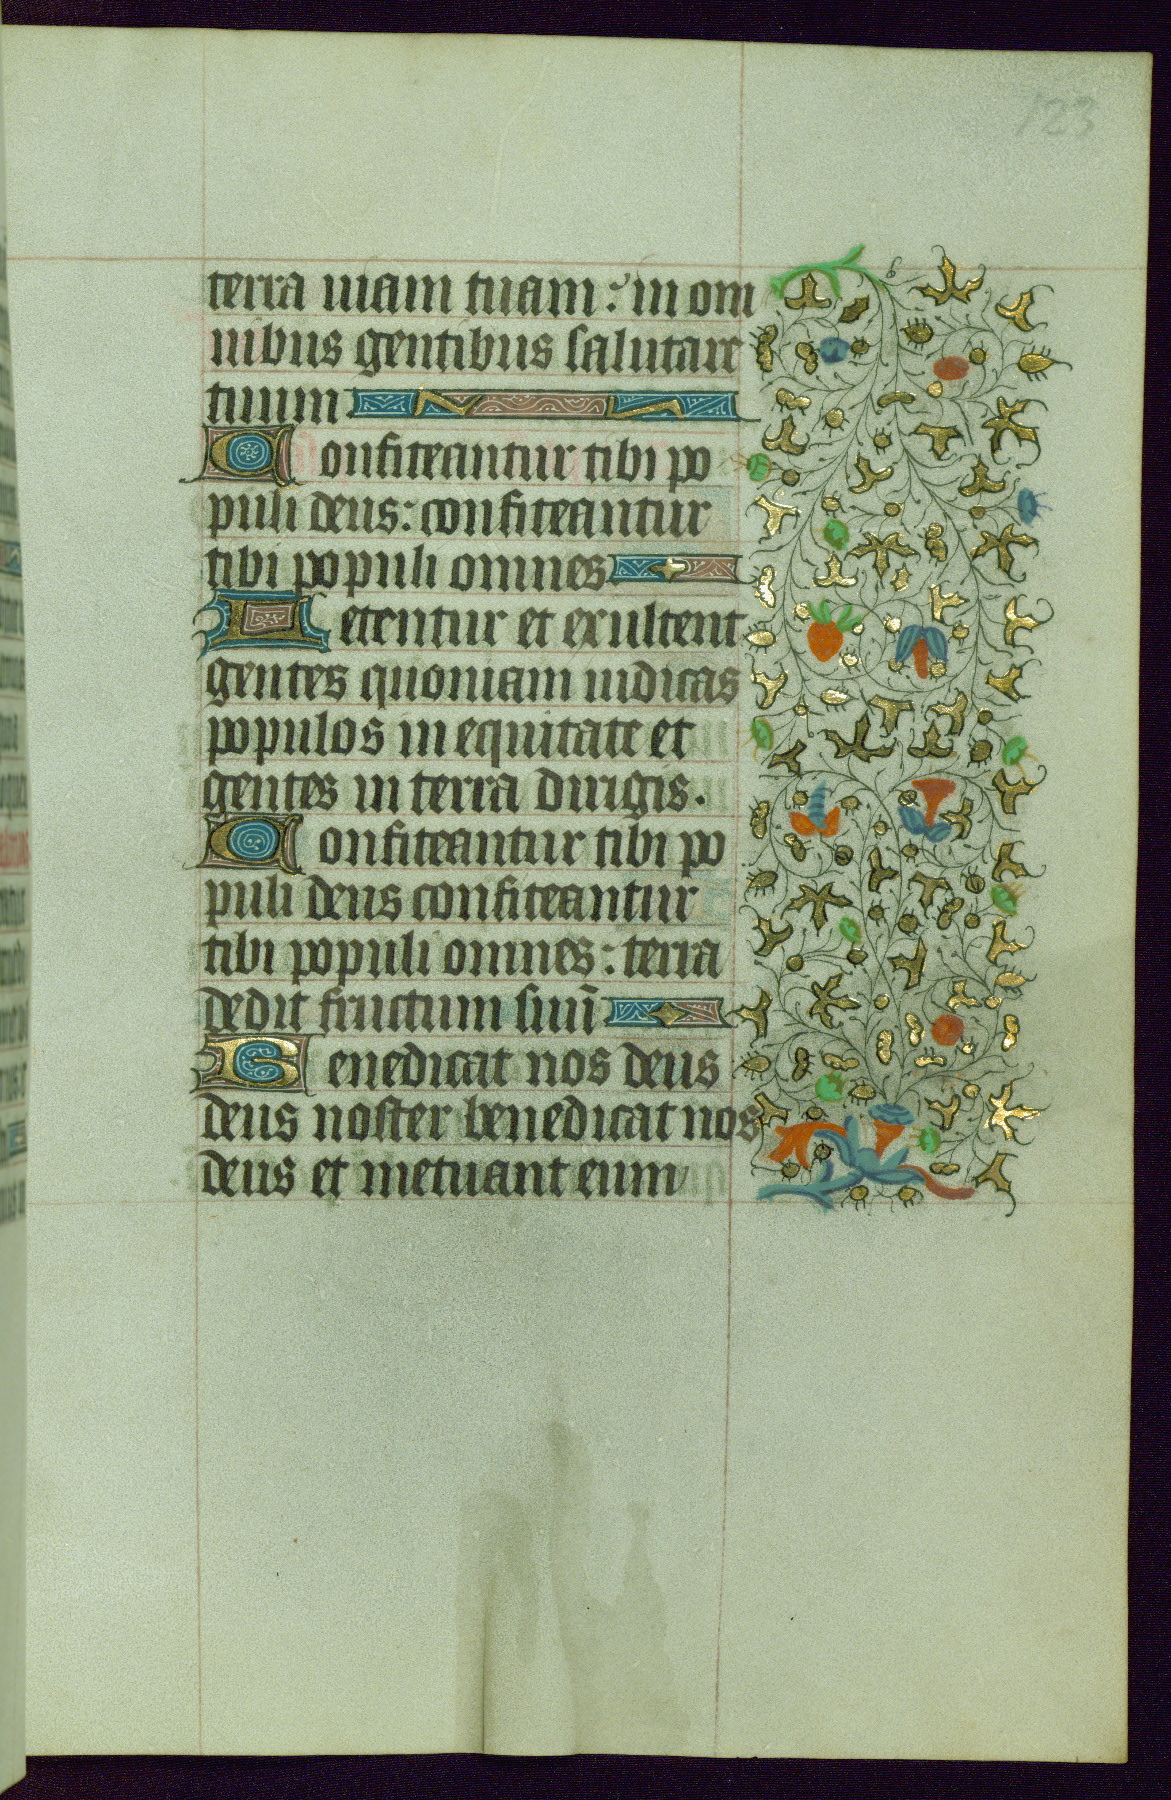 123
terra uiam tuam : in om
nibus gentibus salutare
tuum
Confiteantur tibi po
puli deus : confiteantur
tibi populi omnes
Letentur et exultent
gentes quoniam iudicas
populos in equitate et
gentes in terra dirigis .
Confiteantur tibi po
puli deus confiteantur
tibi populi omnes : terra
dedit fructum suũ
Benedicat nos deus
deus noster benedicat nos
deus et metuant eum